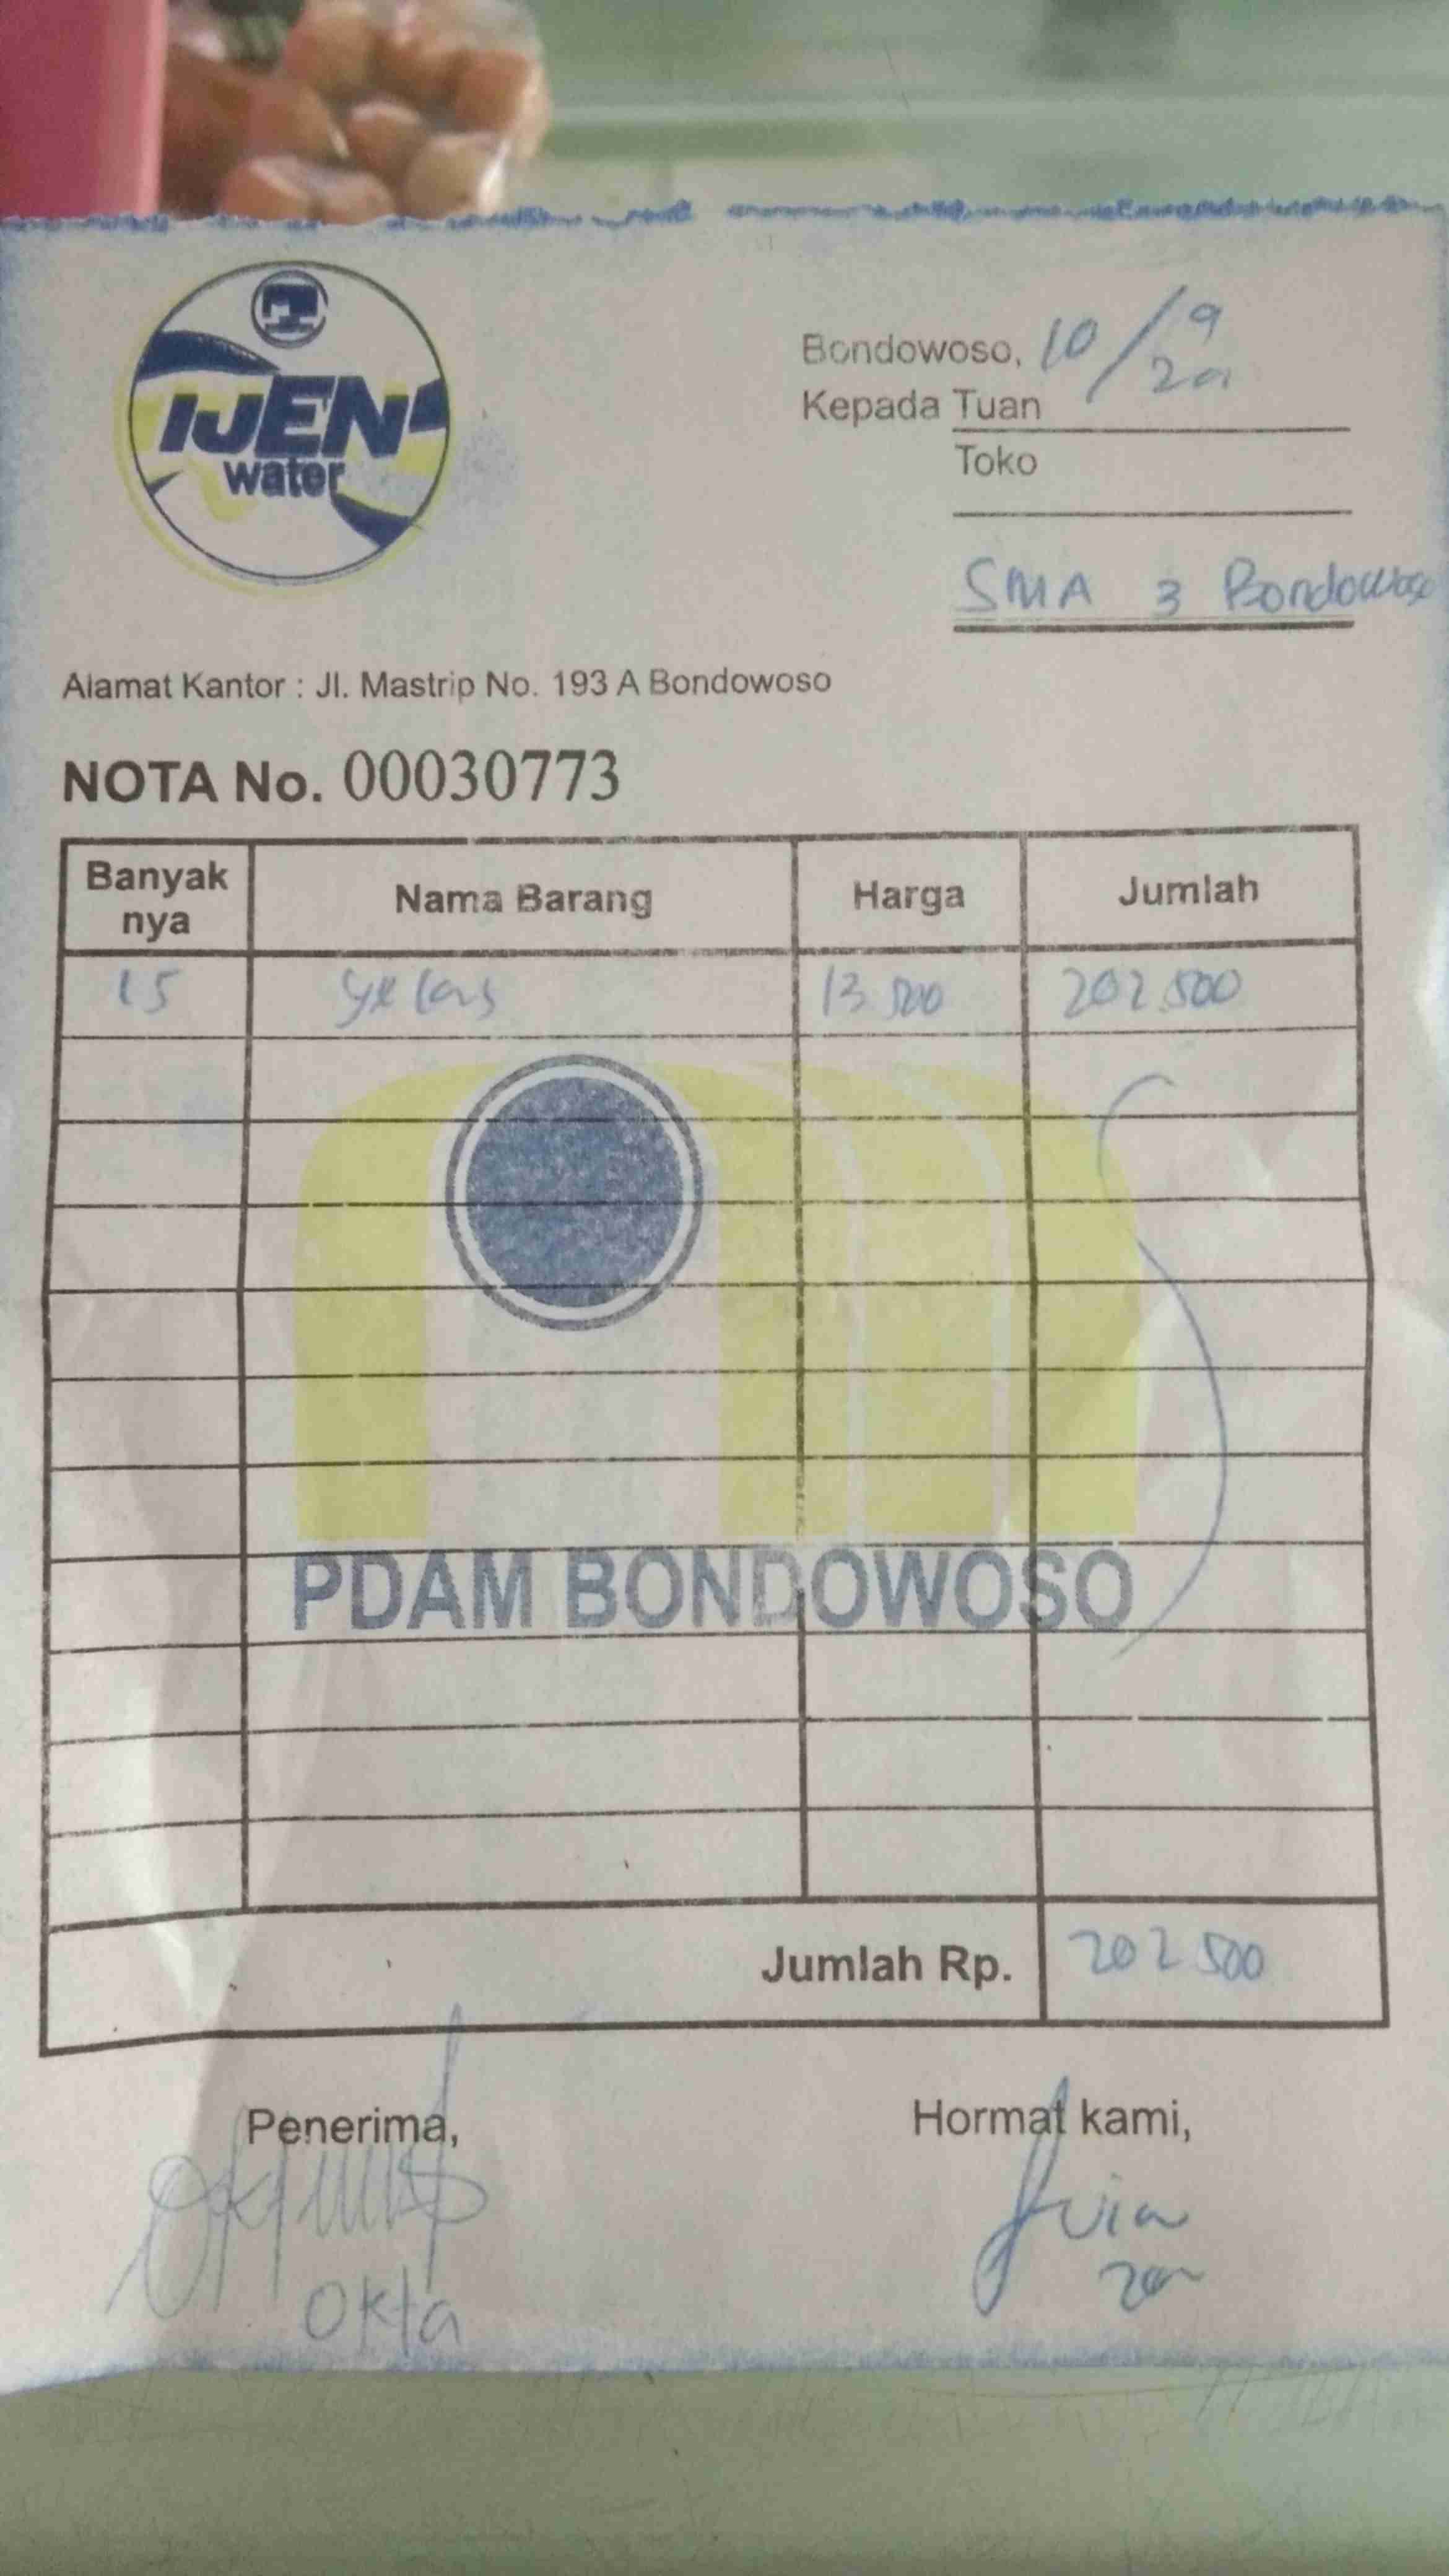 IJEN
water
Bondowoso, 10/9
Kepada Tuan
Toko
SMA 3 Bondowoso
Alamat Kantor : Jl. Mastrip No. 193 A Bondowoso
NOTA No. 00030773
Banyak nya Nama Barang Harga Jumlah
15 gelas 13.500 202.500
PDAM BONDOWOSO
Jumlah Rp. 202.500
Penerima, Hormat kami,
Okta